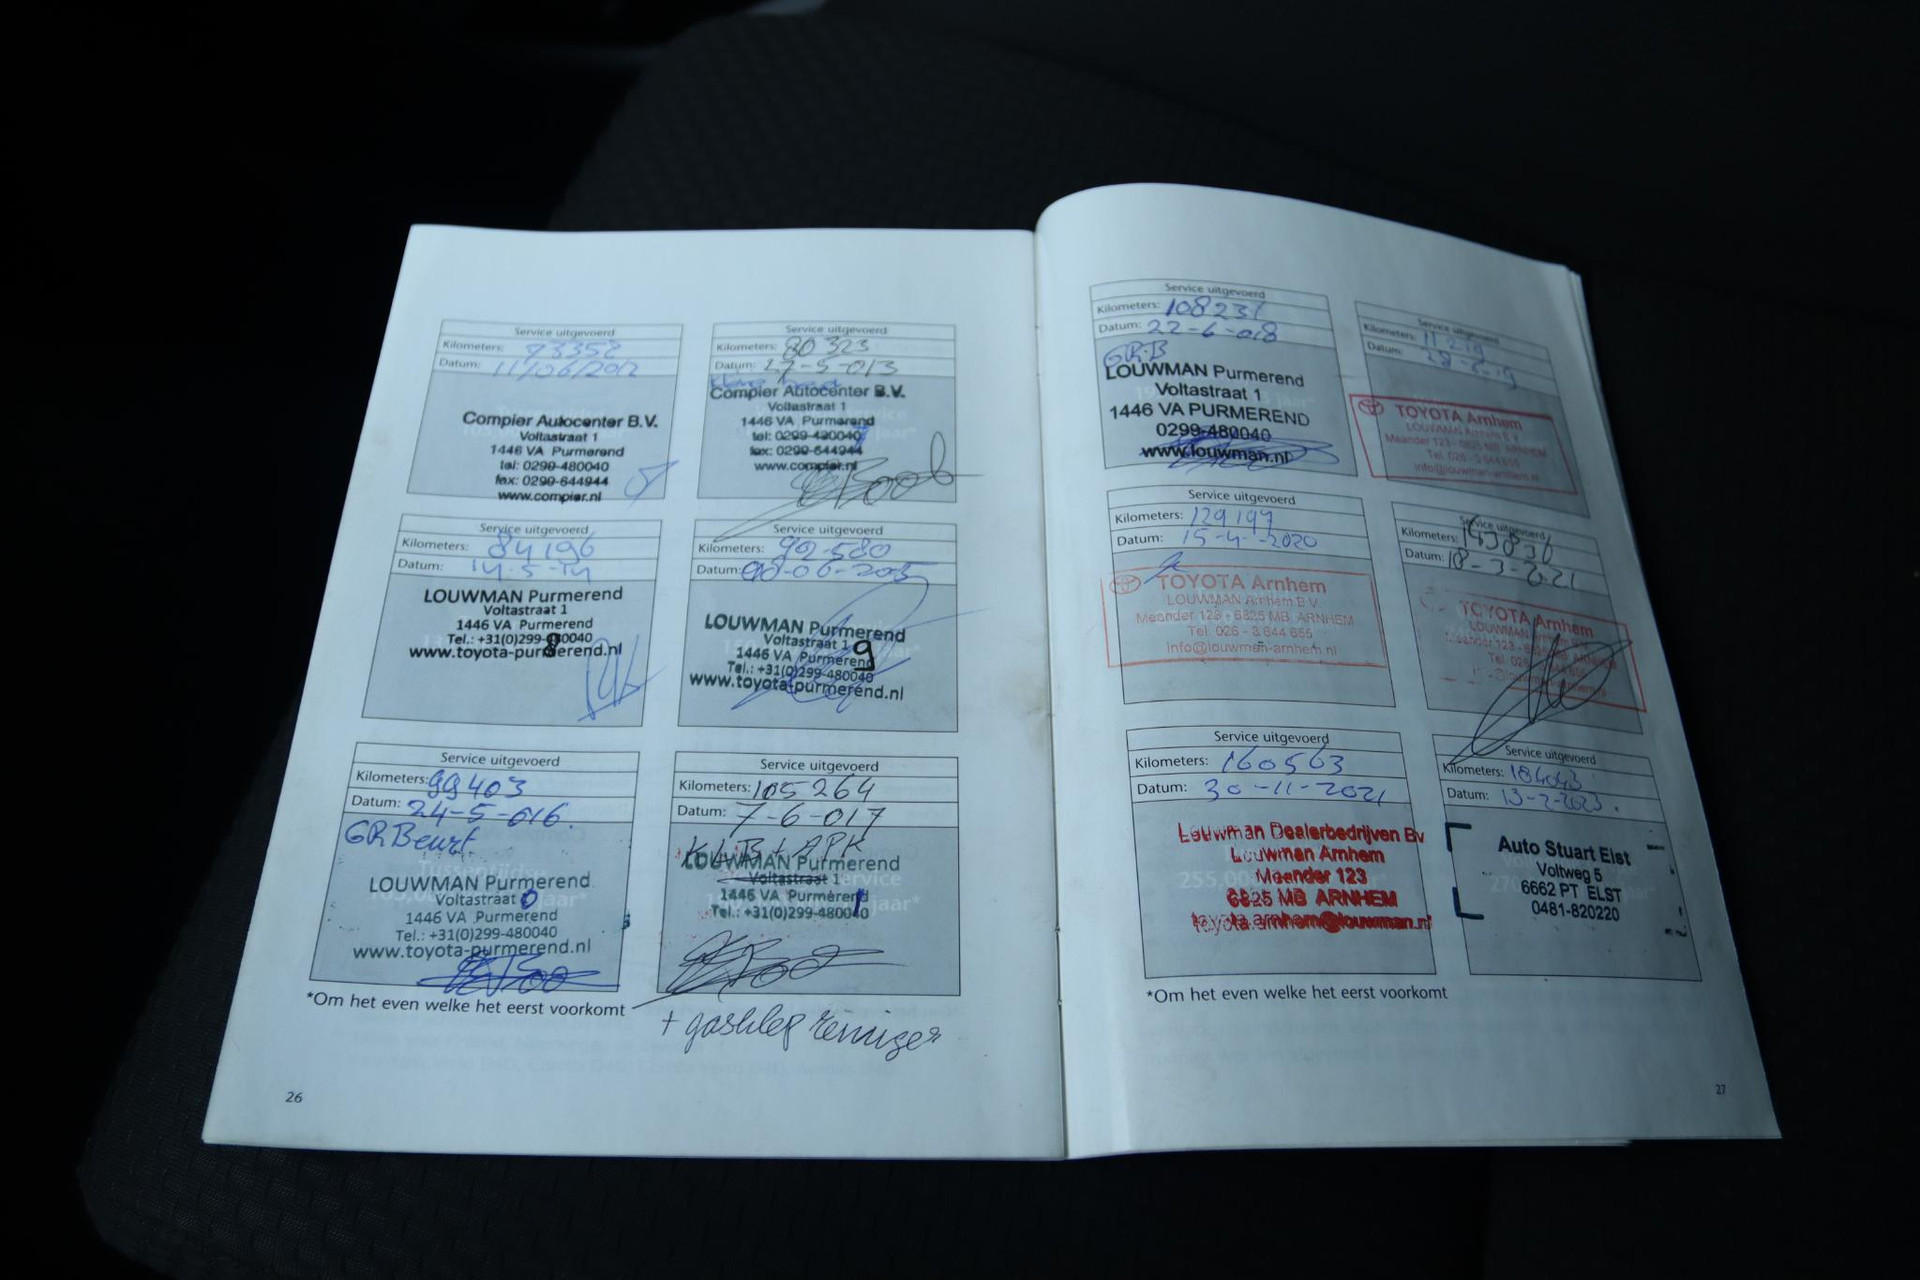 Service uitgevoerd
Kilometers: 73352
Datum: 11/06/2012
Compier Autocenter B.V.
Voltastraat 1
1446 VA Purmerend
tel: 0299-480040
fax: 0299-644944
www.compier.nl
Service uitgevoerd
Kilometers: 80323
Datum: 27-5-013
Compier Autocenter B.V.
Voltastraat 1
1446 VA Purmerend
tel: 0299-480040
fax: 0299-644944
www.compier.nl
Service uitgevoerd
Kilometers: 84196
Datum: 14-5-14
LOUWMAN Purmerend
Voltastraat 1
1446 VA Purmerend
Tel.: +31(0)299-480040
www.toyota-purmerend.nl
8
Service uitgevoerd
Kilometers: 92-580
Datum:
LOUWMAN Purmerend
Voltastraat 1
1446 VA Purmerend
Tel.: +31(0)299-480040
www.toyota-purmerend.nl
9
Service uitgevoerd
Kilometers: 99403
Datum: 24-5-016.
GR Beurt
LOUWMAN Purmerend
Voltastraat
1446 VA Purmerend
Tel.: +31(0)299-480040
www.toyota-purmerend.nl
Service uitgevoerd
Kilometers: 105264
Datum: 7-6-017
KLB + APK
LOUWMAN Purmerend
Voltastraat 1
1446 VA Purmerend
Tel.: +31(0)299-480040
*Om het even welke het eerst voorkomt
+ gasklep reiniger
26
Service uitgevoerd
Kilometers: 108231
Datum: 22-6-018
GR.B
LOUWMAN Purmerend
Voltastraat 1
1446 VA PURMEREND
0299-480040
www.louwman.nl
Service uitgevoerd
Kilometers:
Datum:
TOYOTA Arnhem
LOUWMAN Arnhem B.V.
Meander 123 - 6825 MB ARNHEM
Tel. 026 - 3 644 655
info@louwman-arnhem.nl
Service uitgevoerd
Kilometers: 129197
Datum: 15-4-2020
TOYOTA Arnhem
LOUWMAN Arnhem B.V.
Meander 123 - 6825 MB ARNHEM
Tel. 026 - 3 644 655
info@louwman-arnhem.nl
Service uitgevoerd
Kilometers:
Datum: 18-3-2021
TOYOTA Arnhem
LOUWMAN Arnhem
Service uitgevoerd
Kilometers: 160563
Datum: 30-11-2021
Louwman Dealerbedrijven Bv
Louwman Arnhem
Meander 123
6825 MB ARNHEM
toyota.arnhem@louwman.nl
Service uitgevoerd
Kilometers: 184043
Datum: 13-2-2023.
Auto Stuart Elst
Voltweg 5
6662 PT ELST
0481-820220
*Om het even welke het eerst voorkomt
27